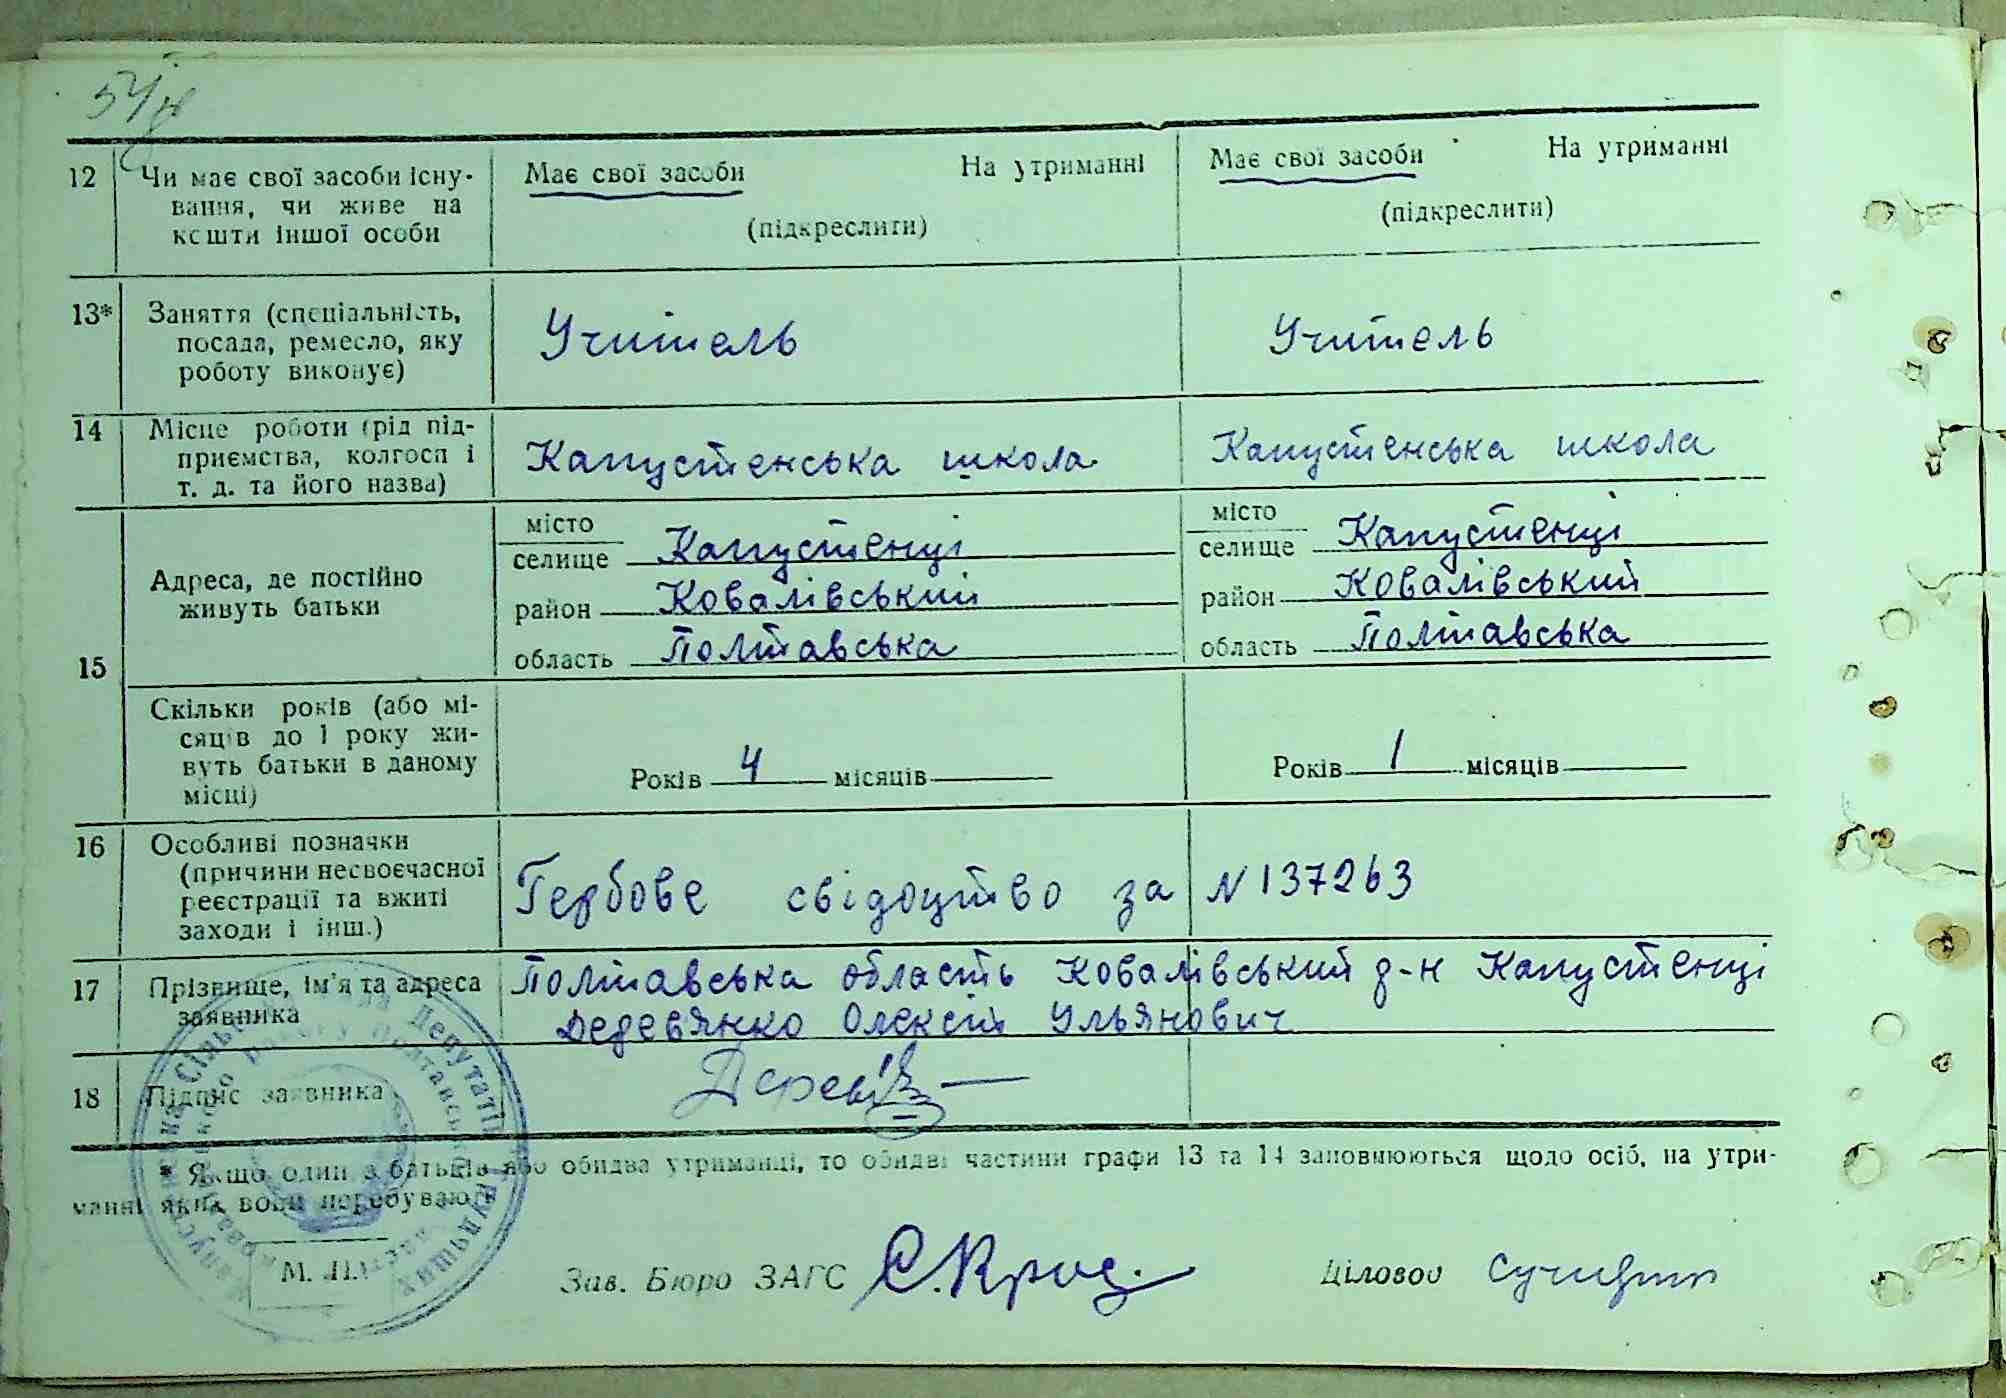 12 Чи має свої засоби існу-
вання, чи живе на
кошти іншої особи
Має свої засоби На утриманні
(підкреслити)
Має свої засоби На утриманні
(підкреслити)
13* Заняття (спеціальність,
посада, ремесло, яку
роботу виконує)
Учитель
Учитель
14 Місце роботи (рід під-
приємства, колгосп і
т. д. та його назва)
Капустенська школа
Капустенська школа
15
Адреса, де постійно
живуть батьки
місто
селище Капустенці
район Ковалівський
область Полтавська
місто
селище Капустенці
район Ковалівський
область Полтавська
Скільки років (або мі-
сяців до 1 року жи-
вуть батьки в даному
місці)
Років 4 місяців
Років 1 місяців
16 Особливі позначки
(причини несвоєчасної
реєстрації та вжиті
заходи і інш.)
Гербове свідоцтво за N 137263
17 Прізвище, ім'я та адреса
заявника
Полтавська область Ковалівський р-н Капустенці
Деревянко Олексій Ульянович
18 Підпис заявника
* Якщо один з батьків або обидва утриманці, то обидві частини графи 13 та 14 заповнюються щодо осіб, на утри-
манні яких вони перебувають
М. П.
Зав. Бюро ЗАГС
Діловод